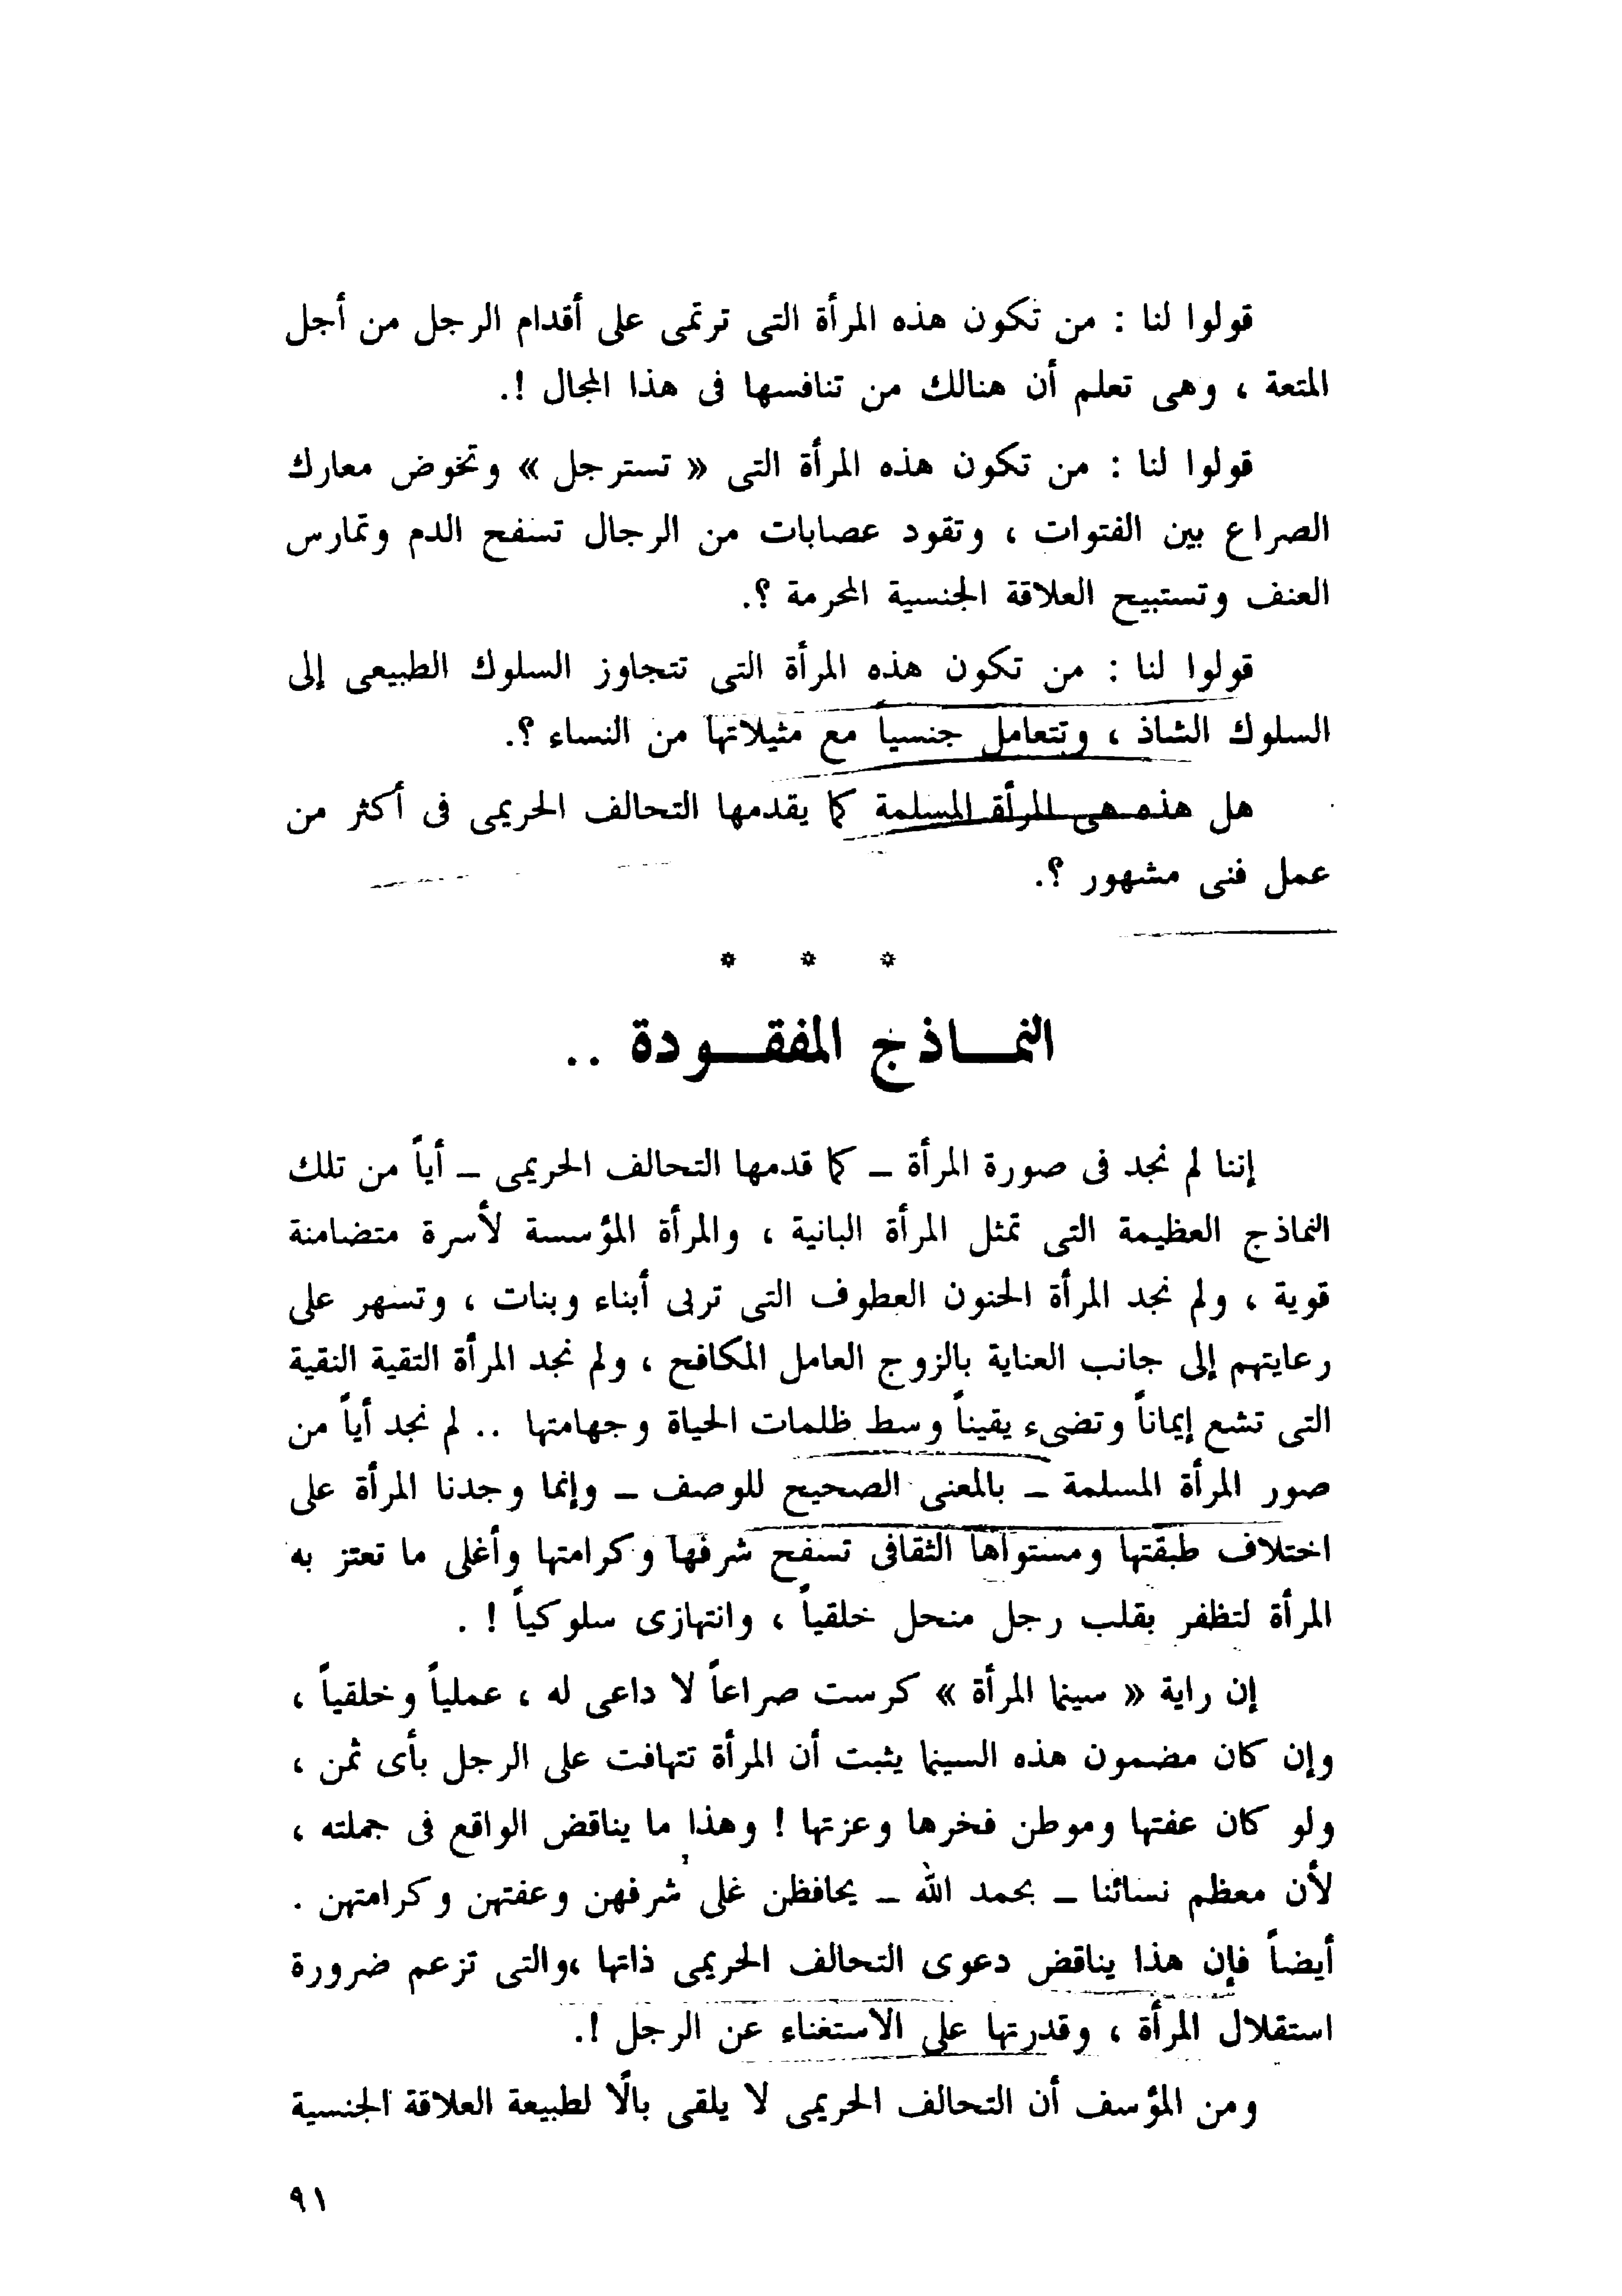 قولوا لنا : من تكون هذه المرأة التى ترتمى على أقدام الرجل من أجل
المتعة ، وهى تعلم أن هنالك من تنافسها فى هذا المجال !.
قولوا لنا : من تكون هذه المرأة التى « تسترجل » وتخوض معارك
الصراع بين الفتوات ، وتقود عصابات من الرجال تسفح الدم وتمارس
العنف وتستبيح العلاقة الجنسية المحرمة ؟.
قولوا لنا : من تكون هذه المرأة التى تتجاوز السلوك الطبيعى إلى
السلوك الشاذ ، وتتعامل جنسياً مع مثيلاتها من النساء ؟.
هل هذه هى المرأة المسلمة كما يقدمها التحالف الحريمى فى أكثر من
عمل فنى مشهور ؟.
* * *
النمـاذج المفقـودة ..
إننا لم نجد فى صورة المرأة – كما قدمها التحالف الحريمى – أياً من تلك
النماذج العظيمة التى تمثل المرأة البانية ، والمرأة المؤسسة لأسرة متضامنة
قوية ، ولم نجد المرأة الحنون العطوف التى تربى أبناء وبنات ، وتسهر على
رعايتهم إلى جانب العناية بالزوج العامل المكافح ، ولم نجد المرأة التقية النقية
التى تشع إيماناً وتضىء يقيناً وسط ظلمات الحياة وجهامتها .. لم نجد أياً من
صور المرأة المسلمة – بالمعنى الصحيح للوصف – وإنما وجدنا المرأة على
اختلاف طبقتها ومستواها الثقافى تسفح شرفها وكرامتها وأغلى ما تعتز به
المرأة لتظفر بقلب رجل منحل خلقياً ، وانتهازى سلوكياً ! .
إن راية « سينما المرأة » كرست صراعاً لا داعى له ، عملياً وخلقياً ،
وإن كان مضمون هذه السينما يثبت أن المرأة تتهافت على الرجل بأى ثمن ،
ولو كان عفتها وموطن فخرها وعزتها ! وهذا ما يناقض الواقع فى جملته ،
لأن معظم نسائنا – بحمد الله – يحافظن على شرفهن وعفتهن وكرامتهن .
أيضاً فإن هذا يناقض دعوى التحالف الحريمى ذاتها ،والتى تزعم ضرورة
استقلال المرأة ، وقدرتها على الاستغناء عن الرجل !.
ومن المؤسف أن التحالف الحريمى لا يلقى بالًا لطبيعة العلاقة الجنسية
٩١